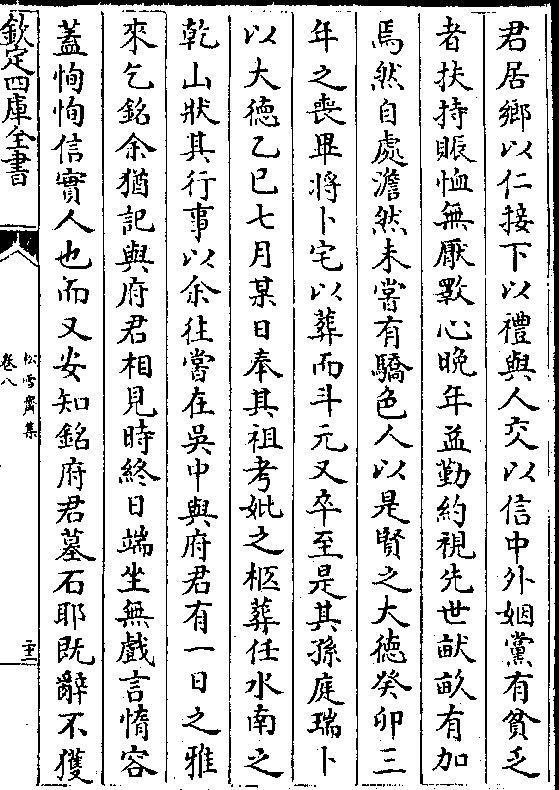 君居鄉以仁接下以禮與人交以信中外姻黨有貧乏
者扶持賑恤無厭斁心晚年益勤約視先世畎畝有加
焉然自處澹然未嘗有驕色人以是賢之大徳癸卯三
年之喪畢將卜宅以葬而斗元又卒至是其孫庭瑞卜
以大徳乙巳七月某日奉其祖考妣之柩葬任水南之
乾山狀其行事以余往嘗在吳中與府君有一日之雅
來乞銘余猶記與府君相見時終日端坐無戲言惰容
蓋恂恂信實人也而又安知銘府君墓石耶既辭不獲
欽定四庫全書
松雪齋集
卷八